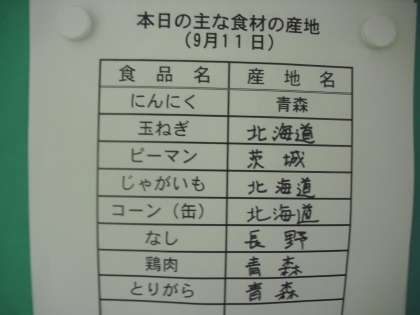 本日の主な食材の産地
(9月11日)
食品名 産地名
にんにく 青森
玉ねぎ 北海道
ピーマン 茨城
じゃがいも 北海道
コーン(缶) 北海道
なし 長野
鶏肉 青森
とりがら 青森